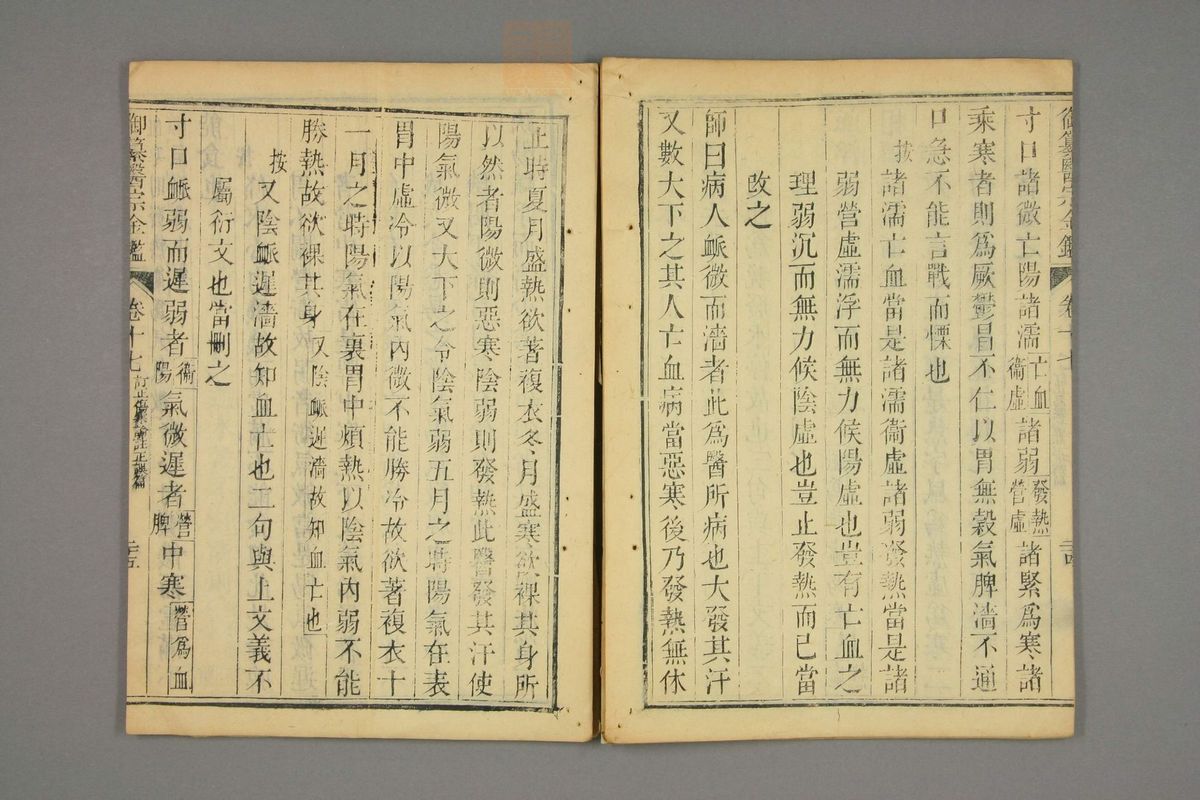 御纂醫宗金鑑 卷十七 二十四
寸口諸微亡陽諸濡亡血衞虛諸弱發熱營虛諸緊爲寒諸
乘寒者則爲厥鬱冒不仁以胃無穀氣脾濇不通
口急不能言戰而慄也
按諸濡亡血當是諸濡衞虛諸弱發熱當是諸
弱營虛濡浮而無力候陽虛也豈有亡血之
理弱沉而無力候陰虛也豈止發熱而已當
改之
師曰病人脈微而濇者此爲醫所病也大發其汗
又數大下之其人亡血病當惡寒後乃發熱無休
止時夏月盛熱欲著複衣冬月盛寒欲裸其身所
以然者陽微則惡寒陰弱則發熱此醫發其汗使
陽氣微又大下之令陰氣弱五月之時陽氣在表
胃中虛冷以陽氣內微不能勝冷故欲著複衣十
一月之時陽氣在裏胃中煩熱以陰氣內弱不能
勝熱故欲裸其身又陰脈遲濇故知血亡也
按又陰脈遲濇故知血亡也二句與上文義不
屬衍文也當刪之
寸口脈弱而遲弱者衞陽氣微遲者營脾中寒營爲血
御纂醫宗金鑑 卷十七 訂正傷寒論註正誤篇 二十五